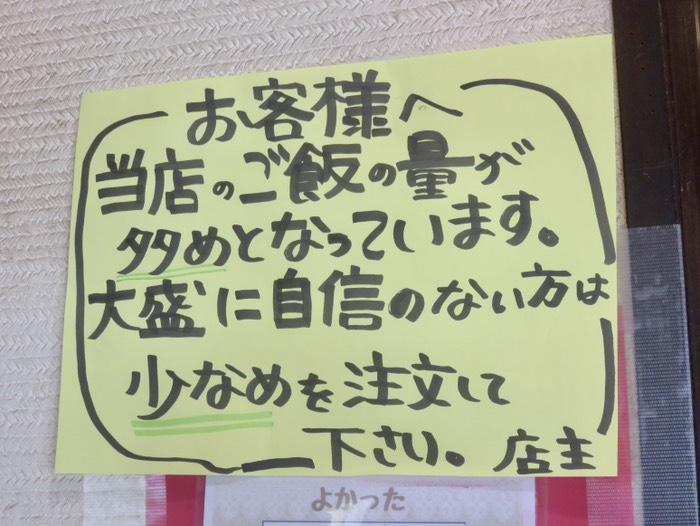 お客様へ
当店のご飯の量が
多めとなっています。
大盛に自信のない方は
少なめを注文して
下さい。 店主
よかった